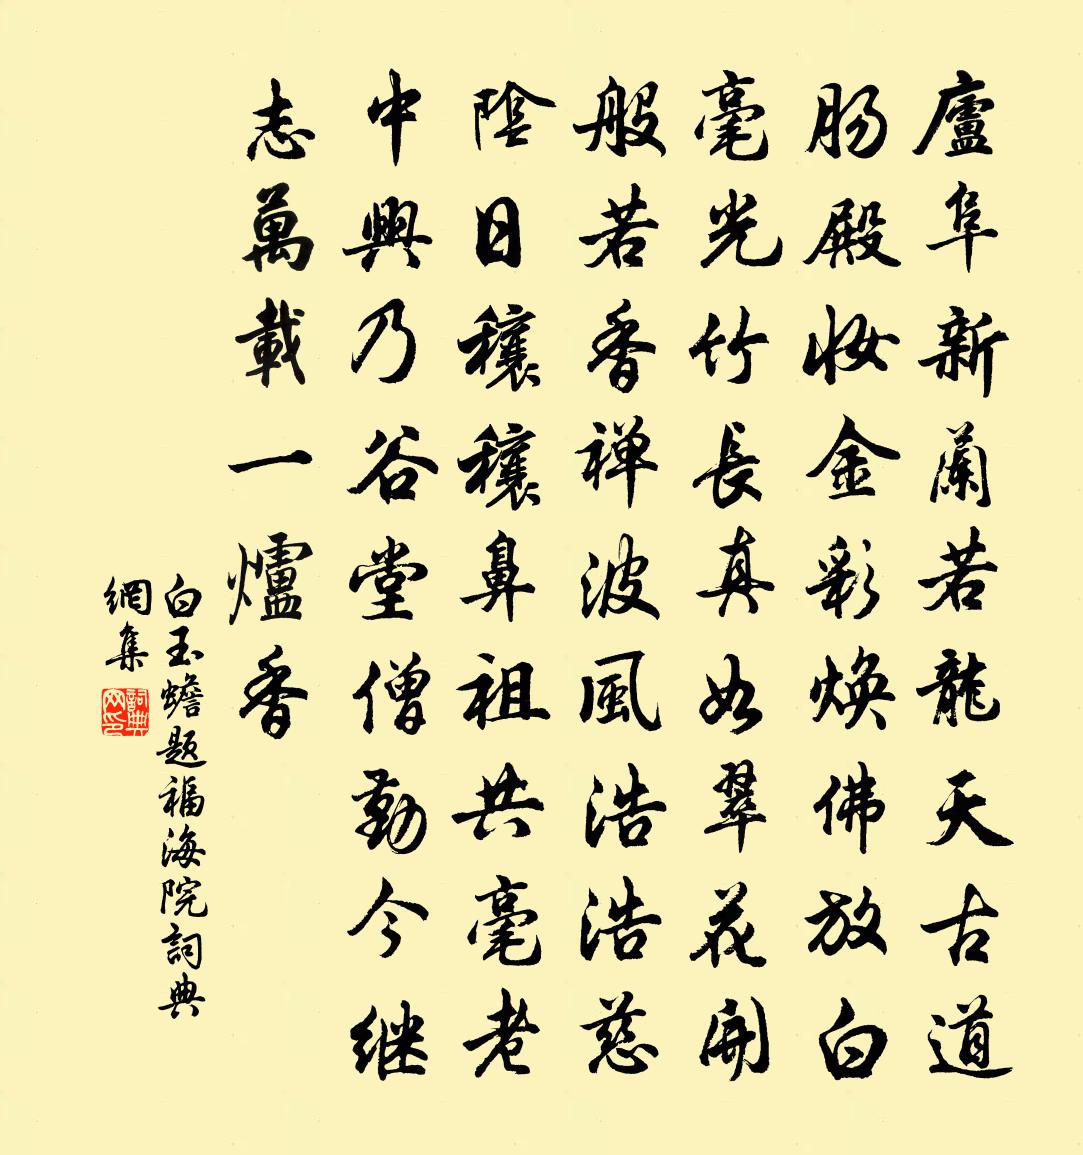 廬阜新蘭若龍天古道
肠殿妆金彩焕佛放白
毫光竹長真如翠花開
般若香禅波風浩浩慈
陰日穰穰鼻祖共毫老
中興乃谷堂僧勤今继
志萬載一爐香
白玉蟾题福海院詞典
網集
詞典网印